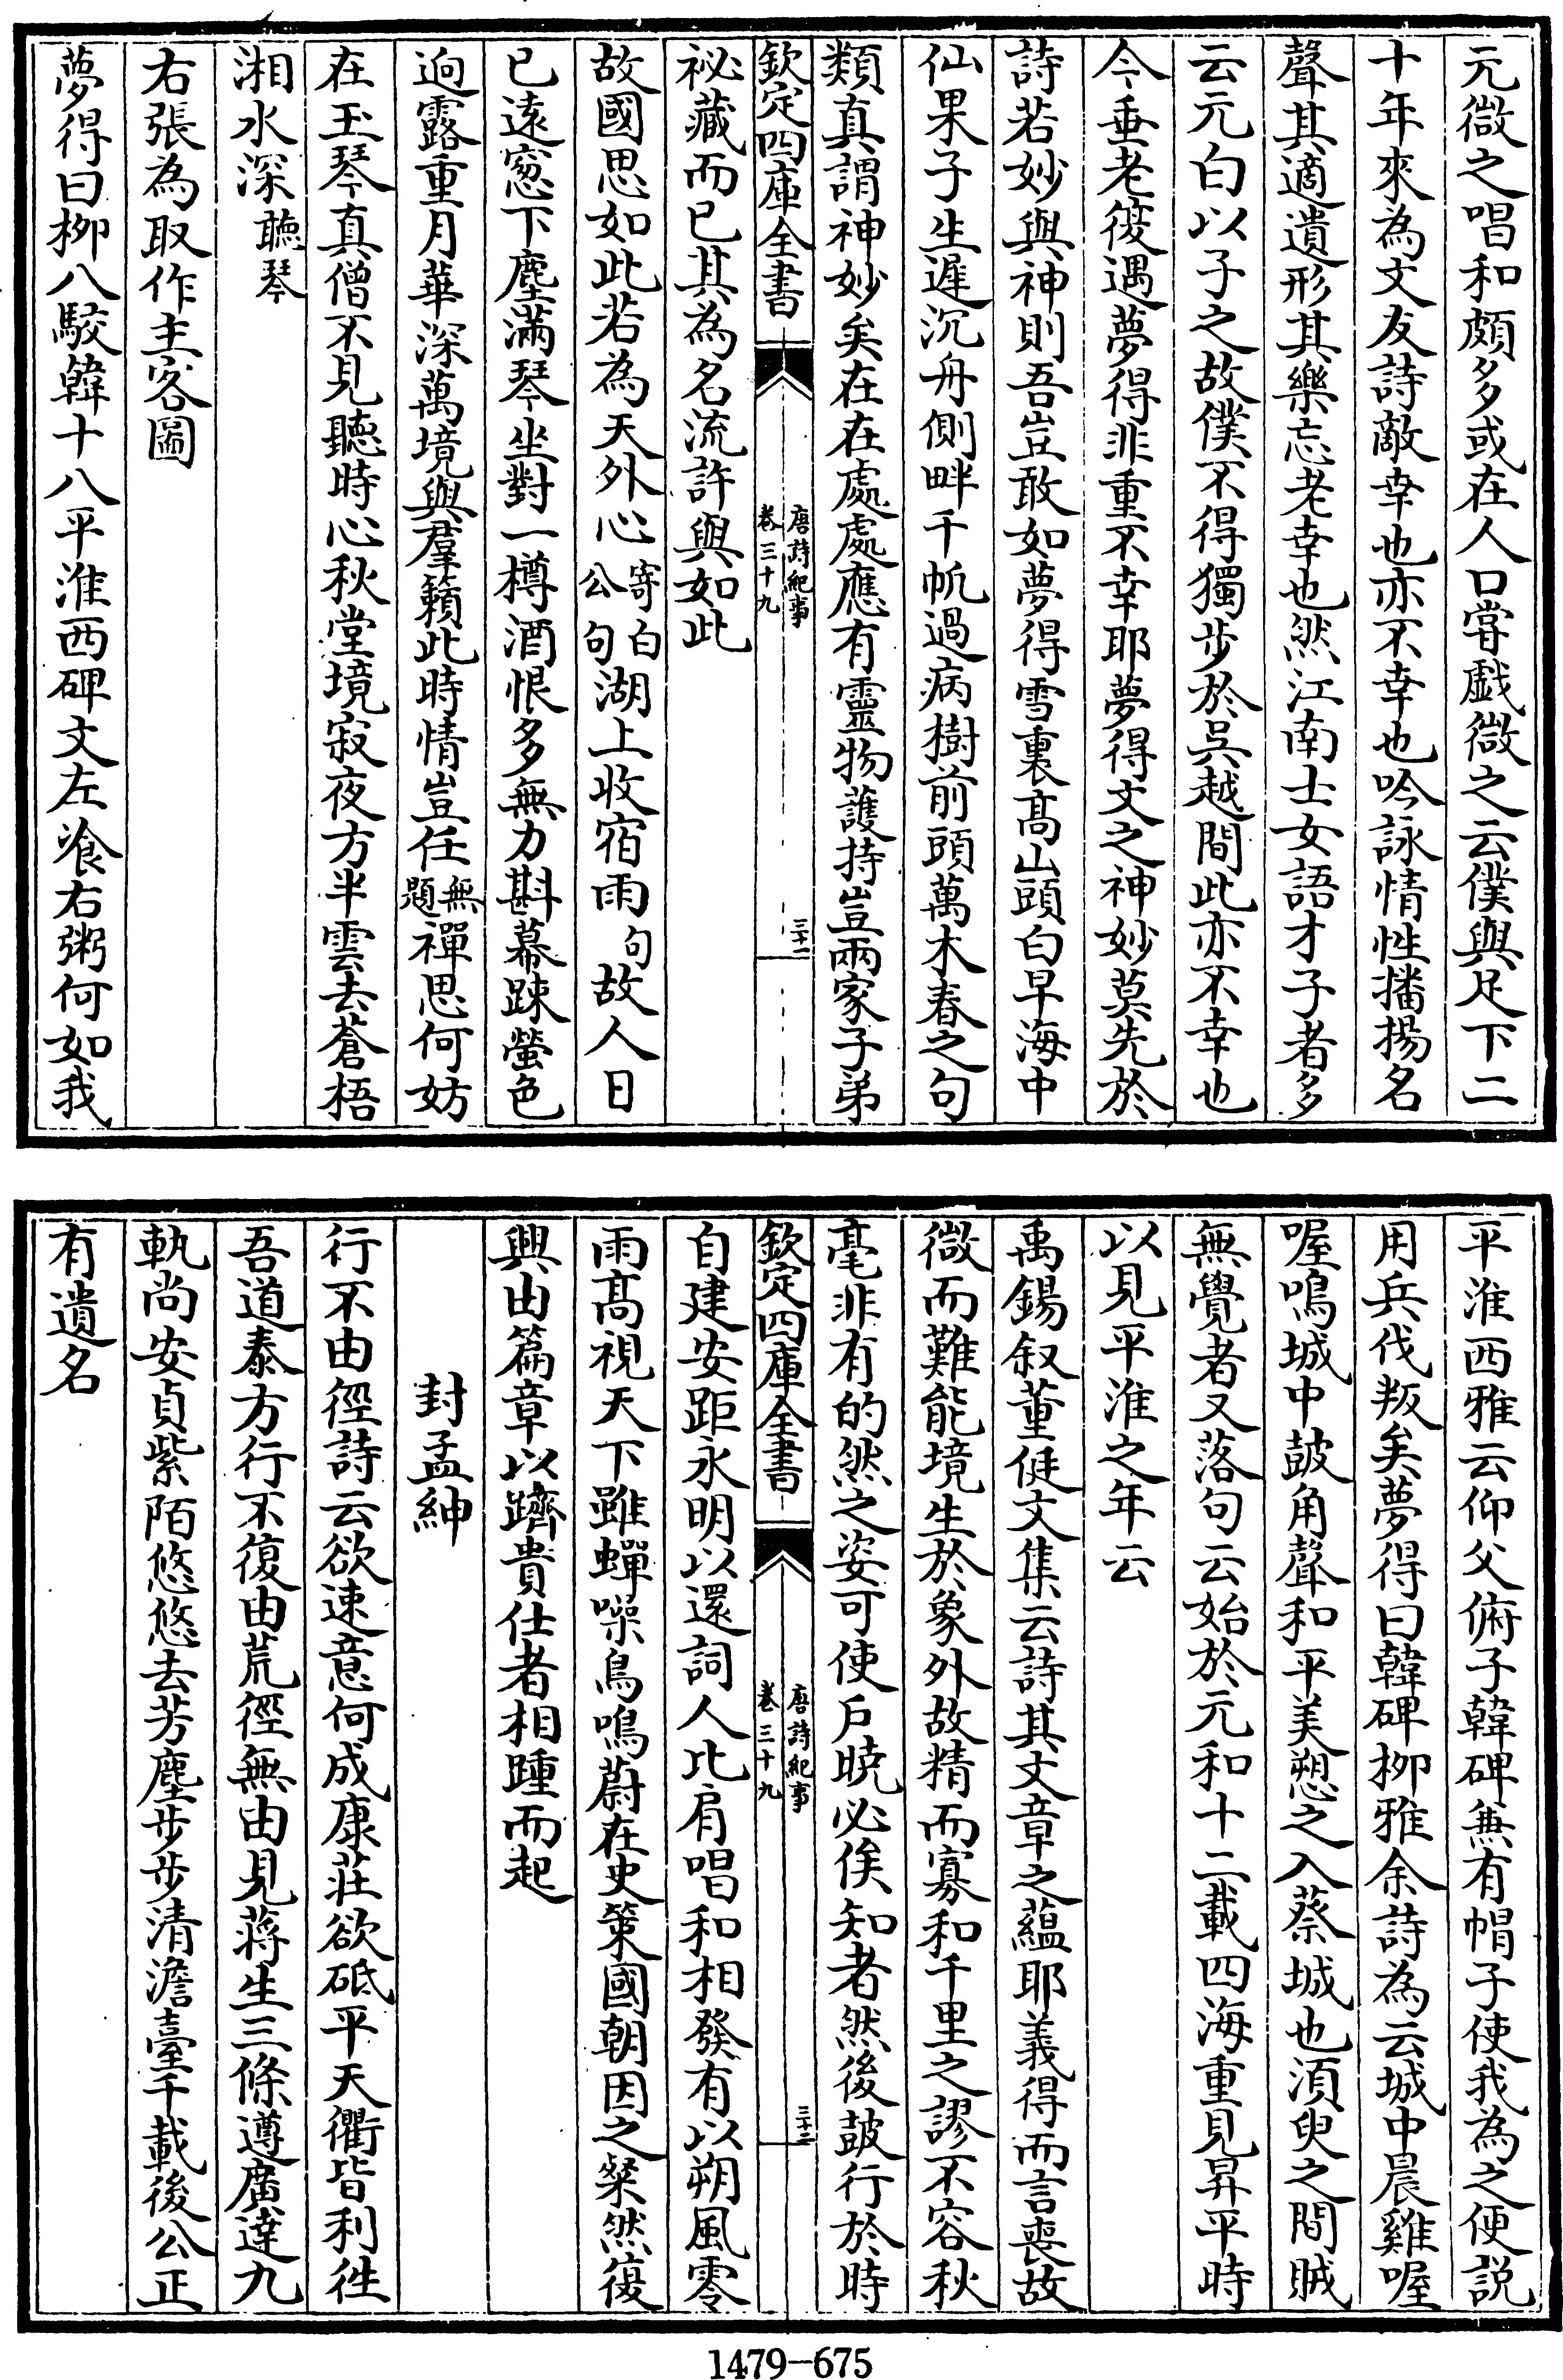 元微之唱和頗多或在人口嘗戯微之云僕與足下二
十年來為文友詩敵幸也亦不幸也吟詠情性播揚名
聲其適遺形其樂忘老幸也然江南士女語才子者多
云元白以子之故僕不得獨步於吳越間此亦不幸也
今垂老復遇夢得非重不幸耶夢得文之神妙莫先於
詩若妙與神則吾豈敢如夢得雪裏髙山頭白早海中
仙果子生遲沉舟側畔千帆過病樹前頭萬木春之句
類真謂神妙矣在在處處應有靈物護持豈兩家子弟
欽定四庫全書
唐詩紀事
卷三十九
三十一
祕藏而已其為名流許與如此
故國思如此若為天外心寄白公句湖上收宿雨句故人日
已遠窓下塵滿琴坐對一樽酒恨多無力斟幕踈螢色
逈露重月華深萬境與羣籟此時情豈任無題禪思何妨
在玉琴真僧不見聽時心秋堂境寂夜方半雲去蒼梧
湘水深聽琴
右張為取作主客圖
夢得曰栁八駮韓十八平淮西碑文左飡右粥何如我
平淮西雅云仰父俯子韓碑無有帽子使我為之便説
用兵伐叛矣夢得曰韓碑栁雅余詩為云城中晨雞喔
喔鳴城中皷角聲和平美愬之入蔡城也湏臾之間賊
無覺者又落句云始於元和十二載四海重見昇平時
以見平淮之年云
禹錫叙董侹文集云詩其文章之蘊耶義得而言喪故
微而難能境生於象外故精而寡和千里之謬不容秋
毫非有的然之姿可使户曉必俟知者然後皷行於時
欽定四庫全書
唐詩紀事
卷三十九
三十二
自建安距永明以還詞人比肩唱和相發有以朔風零
雨髙視天下雖蟬噪鳥鳴蔚在史策國朝因之粲然復
興由篇章以躋貴仕者相踵而起
封孟紳
行不由徑詩云欲速意何成康莊欲砥平天衢皆利往
吾道泰方行不復由荒徑無由見蔣生三條遵廣達九
軌尚安貞紫陌悠悠去芳塵步步清澹臺千載後公正
有遺名
1479—675